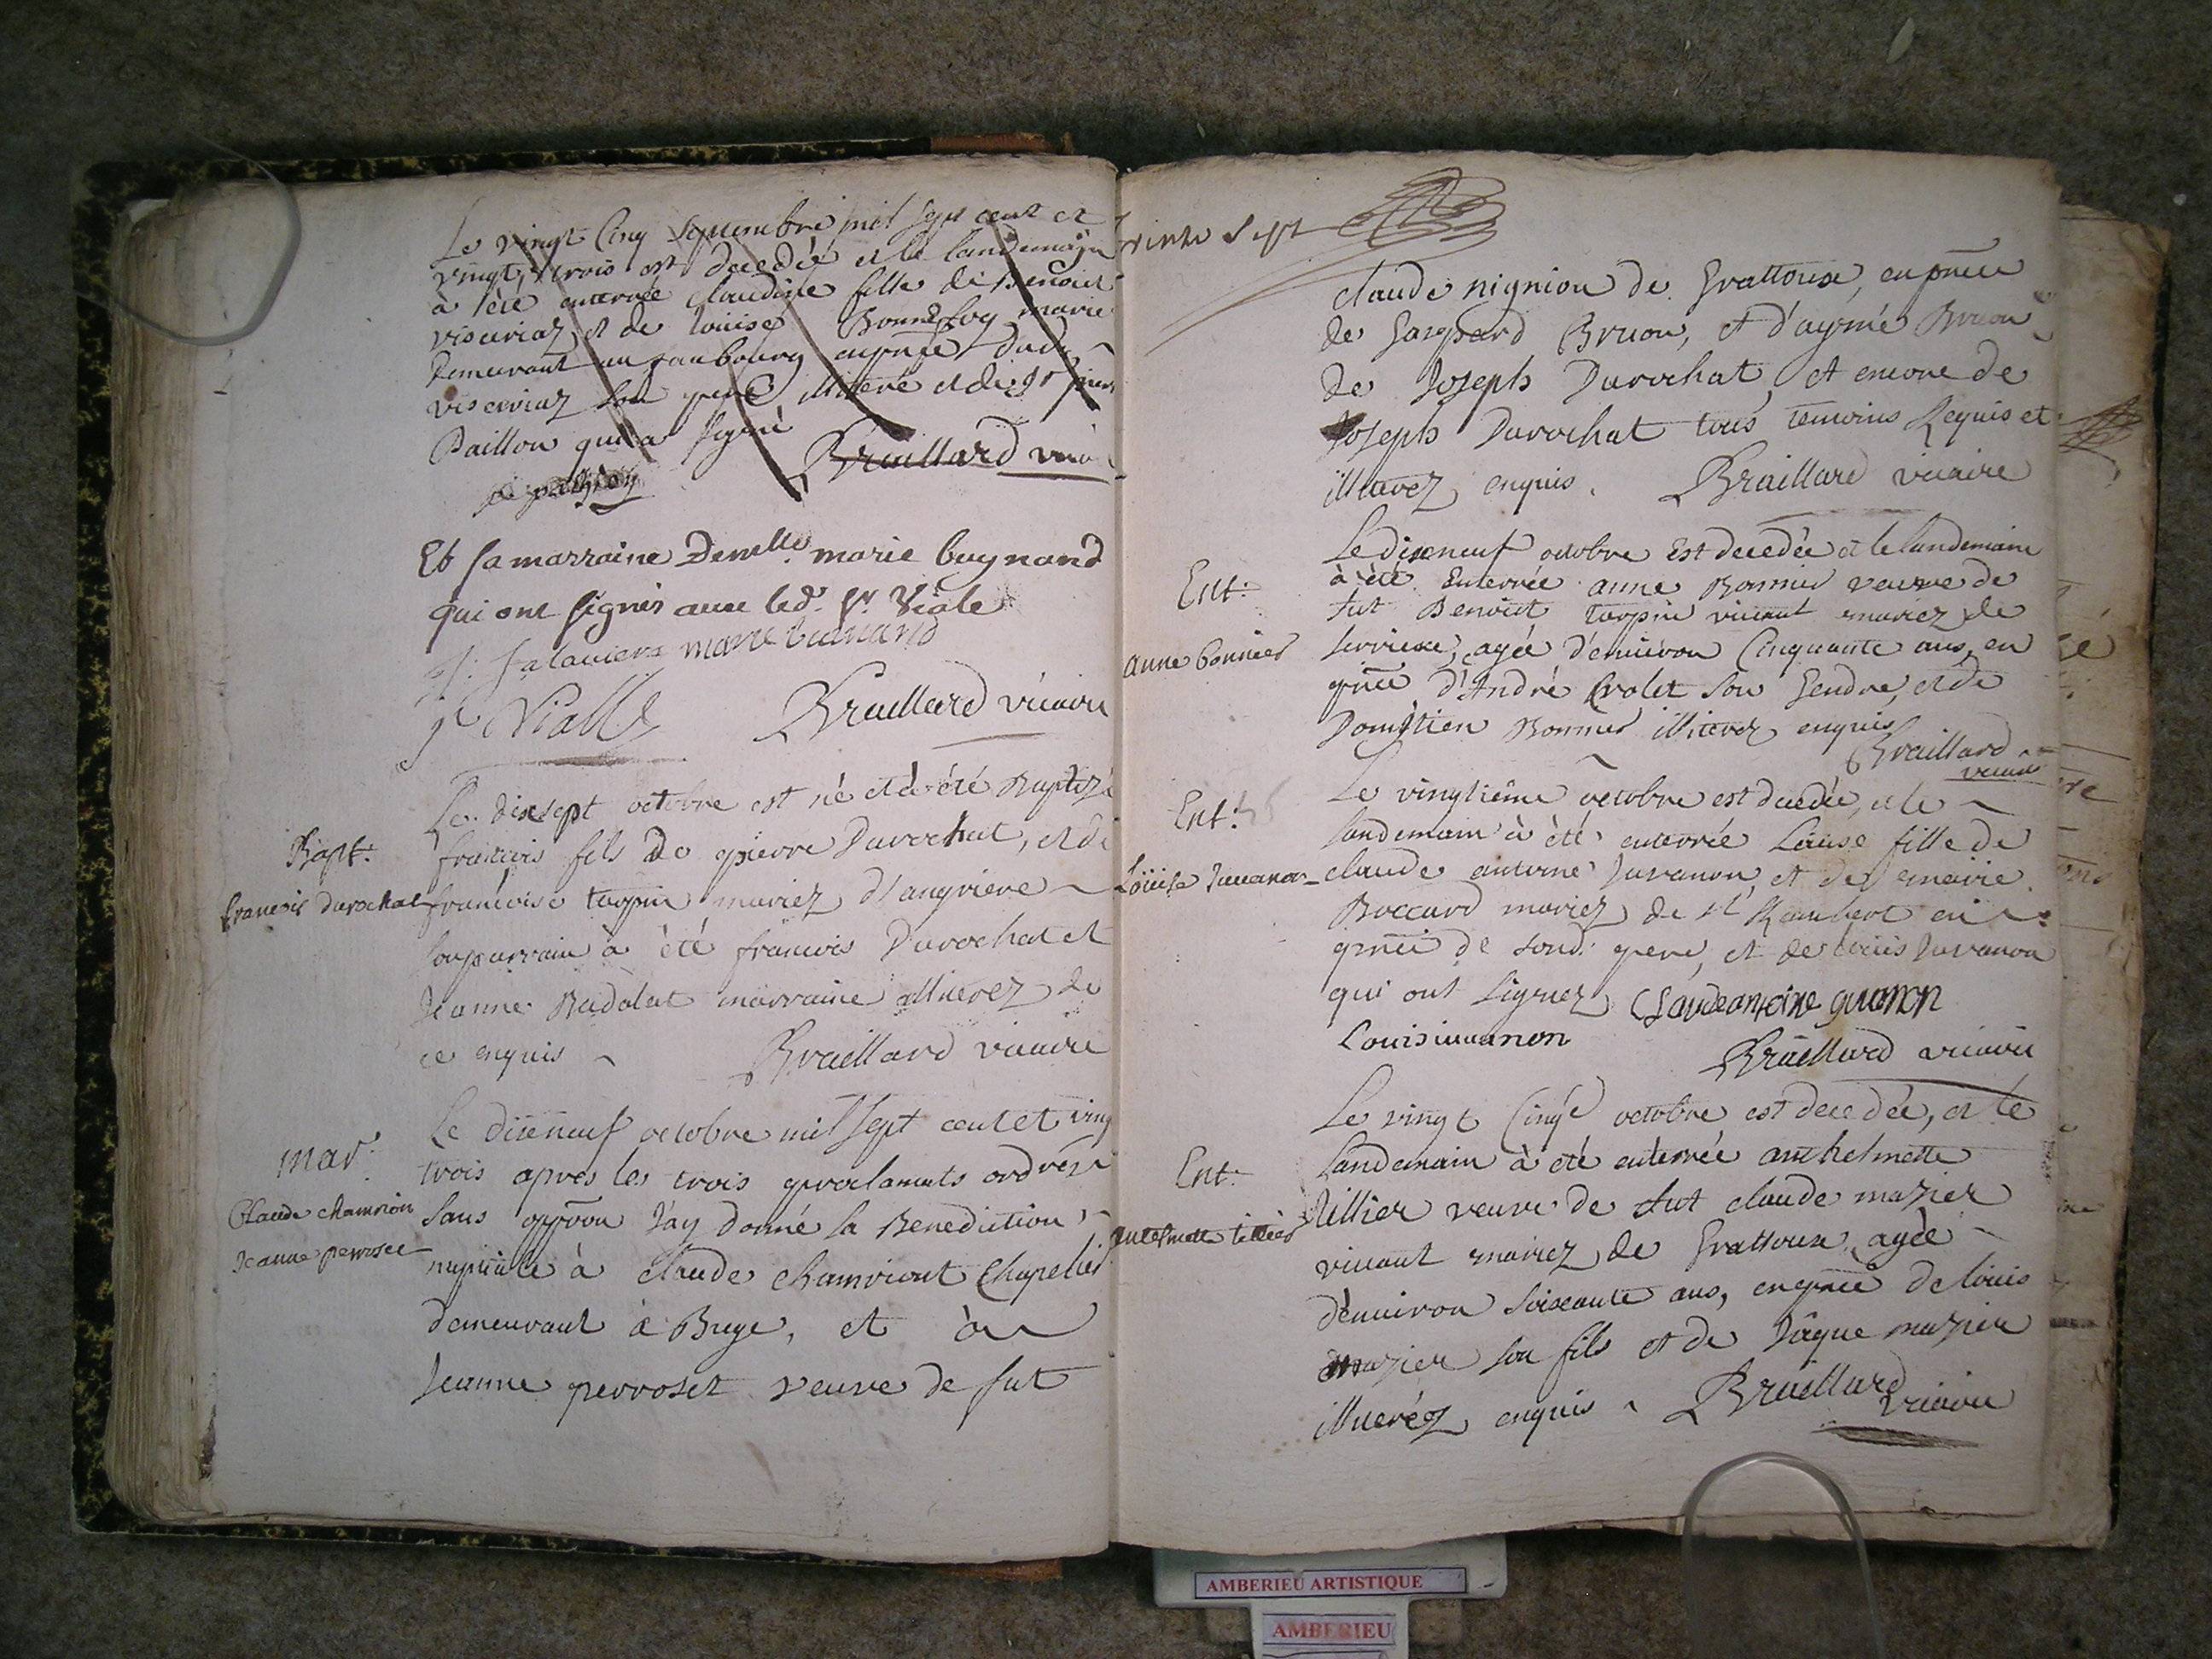 Le vingt Cinq septembre mil sept cent et
vingt, trois est decedée et le landemain
à été enterrée claudine fille de Benoit
viscuriaz et de loüise Bonnefoy mariez
demeurant au faubourg enpñce dudt
viscuriaz son pere illiteré et de sr
Paillon qui a signé
Braillard
Et sa marraine Demlle marie buynand
qui ont signés avec led. sr Viale
marie buinand
Vialle
Braillard vicaire
Bapt.
francois durochat
Le dixsept octobre est né et à été Baptizé
francois fils de pierre Durochat, et de
francoise turpin mariez d'angriere
son parrain à été francois Durochat et
Jeanne Badolat marraine illiterez de
ce enquis
Braillard vicaire
mar.
Claude chamrion
Jeanne perroset
Le dixneuf octobre mil sept cent et ving
trois apres les trois proclamats ordrés
sans oppoon J'ay donné la Benediction
nuptiale à claude chamriont Chapelier
demeurant à Brge, et à
Jeanne perroset veuve de fut
trente sept
claude nigniou de Grattoux, en pñce
de Gaspard Bruon, et d'aymé Bruon
de Joseph Durochat, et encore de
Joseph Durochat tous temoins Requis et
illiterez enquis.
Braillard vicaire
Ent.
anne bonnier
Le dixneuf octobre Est decedée et le landemain
à été Enterrée anne Bonnier veuve de
fut Benoit turpin vivant mariez de
serriere, agée d'environ Cinquante ans, en
pñce d'André Crolet son Gendre, et de
Domitien Bonnier illiterez enquis
Braillard
vicaire
Ent.
Loüise Juuanon
Le vingtiême octobre est decedée, et le
landemain à été enterrée Loüise fille de
claude antoine Juvanon, et de marie
Boccard mariez de st Rambert en
pñce de sond. pere, et de loüis Juvanon
qui ont signez
Claudeantoine guanon
Louis iuuanon
Braillard vicaire
Ent.
antelmette tillier
Le vingt Cinqe octobre est decedée, et le
landemain à été enterrée anthelmette
tillier veuve de fut claude mazier
vivant mariez de Grattoux, agée
d'environ soixante ans, enpñce de loüis
mazier son fils et de Jâque mazier
illiteréz enquis
Braillard
vicaire
AMBERIEU ARTISTIQUE
AMBERIEU